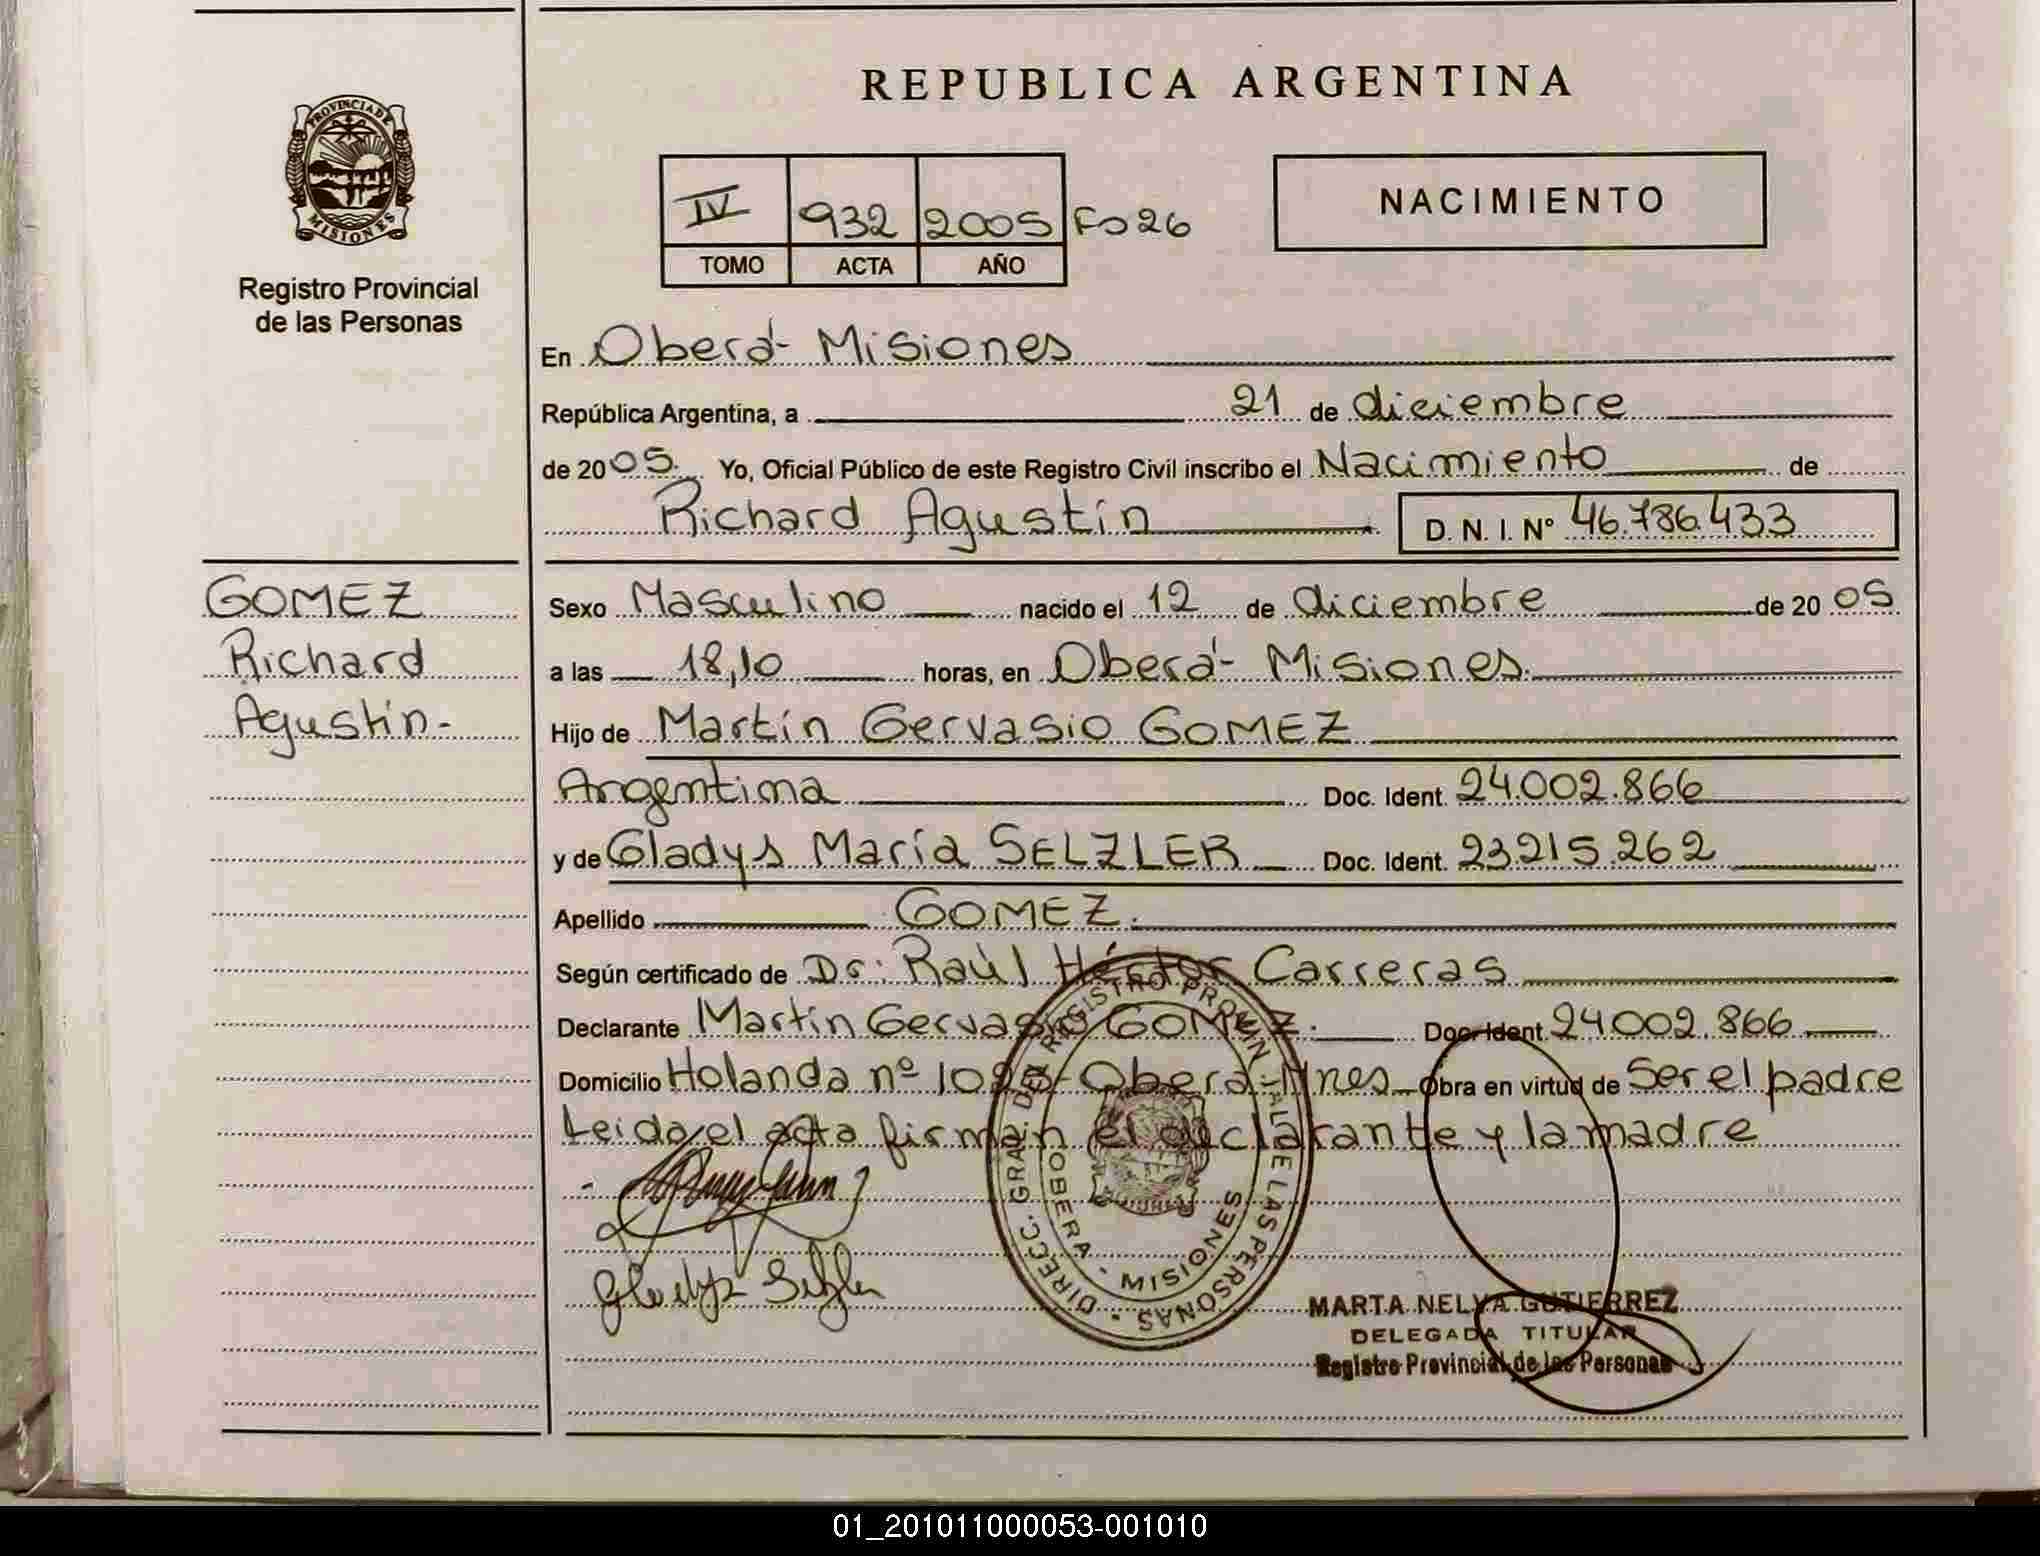 PROVINCIA DE
MISIONES
Registro Provincial
de las Personas
REPUBLICA ARGENTINA
IV 932 2005 Fo 26
TOMO ACTA AÑO
NACIMIENTO
En Oberá - Misiones
República Argentina, a 21 de diciembre
de 2005. Yo, Oficial Público de este Registro Civil inscribo el Nacimiento de
Richard Agustín D. N. I. Nº 46.786.433
GOMEZ
Richard
Agustín-
Sexo Masculino nacido el 12 de diciembre de 2005
a las 18,10 horas, en Oberá - Misiones.
Hijo de Martín Gervasio GOMEZ
Argentina Doc. Ident. 24.002.866
y de Gladys María SELZLER Doc. Ident. 23.215.262
Apellido GOMEZ.
Según certificado de Dr: Raúl Héctor Carreras
Declarante Martín Gervasio GOMEZ. Doc. Ident. 24.002.866
Domicilio Holanda nº Oberá-Mnes Obra en virtud de Ser el padre
Leida el acta firman el declarante y la madre
Gladys Selzler
DIRECC. GRAL. DEL REGISTRO PROVINCIAL DE LAS PERSONAS
OBERA - MISIONES
MARTA NELYA GUTIERREZ
DELEGADA TITULAR
Registro Provincial de las Personas
01_201011000053-001010